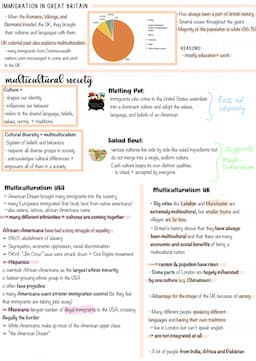 IMMIGRATION IN GREAT BRITAIN
- When the Romans, Vikings, and
Normans invaded the UK, they brought
their cultures and languages with them
UK colonial past also explains multiculturalism:
- many immigrants from Commonwealth
nations were encouraged to come and work
in the UK
- Has always been a part of British history
- Several waves throughout the years
- Majority of the population is white (86 %)
REASONS:
- mostly education + work
multicultural society
Culture =
- shapes our identity
- influences our behavior
- refers to the shared language, beliefs,
values, norms, + traditions
Cultural diversity + multiculturalism:
- System of beliefs and behaviors
- respects all diverse groups in society
- acknowledges cultural differences +
empowers all of them in a society
Melting Pot:
Immigrants who come to the United States assimilate
into a dominant culture and adopt the values,
language, and beliefs of Americans
loss of
identity
Salad Bowl:
- various cultures live side by side like salad ingredients but
do not merge into a single, uniform culture
- Each culture keeps its own distinct qualities
- is valued + accepted by everyone
supports
multi-
culturalism
Multiculturalism USA
- American Dream brought many immigrants into the society
- many Europeans immigrated (first took land from native americans)
- also asians, latinos, african Americans came
→ many different ethnicities + cultures are coming together
African-Americans have had a long struggle of equality:
- 1863: abolishment of slavery
- Segregation, economic oppression, racial discrimination
- 1964: "Jim Crow" laws were struck down → Civil Rights movement
→ Hispanics
- overtook African-Americans as the largest ethnic minority
- fastest-growing ethnic group in the USA
- often face prejudice
- many Americans want stricter immigration control (bc they feel
that immigrants are taking jobs away)
→ Mexicans: largest number of illegal immigrants to the USA, crossing
illegally the border
- White Americans: make up most of the American upper class
→ "the American Dream"
Multiculturalism UK
- Big cities like London and Manchester are
extremely multicultural, but smaller towns and
villages are far less
- Britain's history shows that they have always
been multicultural and that there are many
economic and social benefits of being a
multicultural nation
→ racism & populism have risen
- Some parts of London are hugely influenced
by one culture (e.g. Chinatown)
- Advantage for the image of the UK because of variety
- Many different people speaking different
languages and having their own traditions
- live in London but can't speak english
→ are not integrated at all
- A lot of people from India, Africa and Pakistan